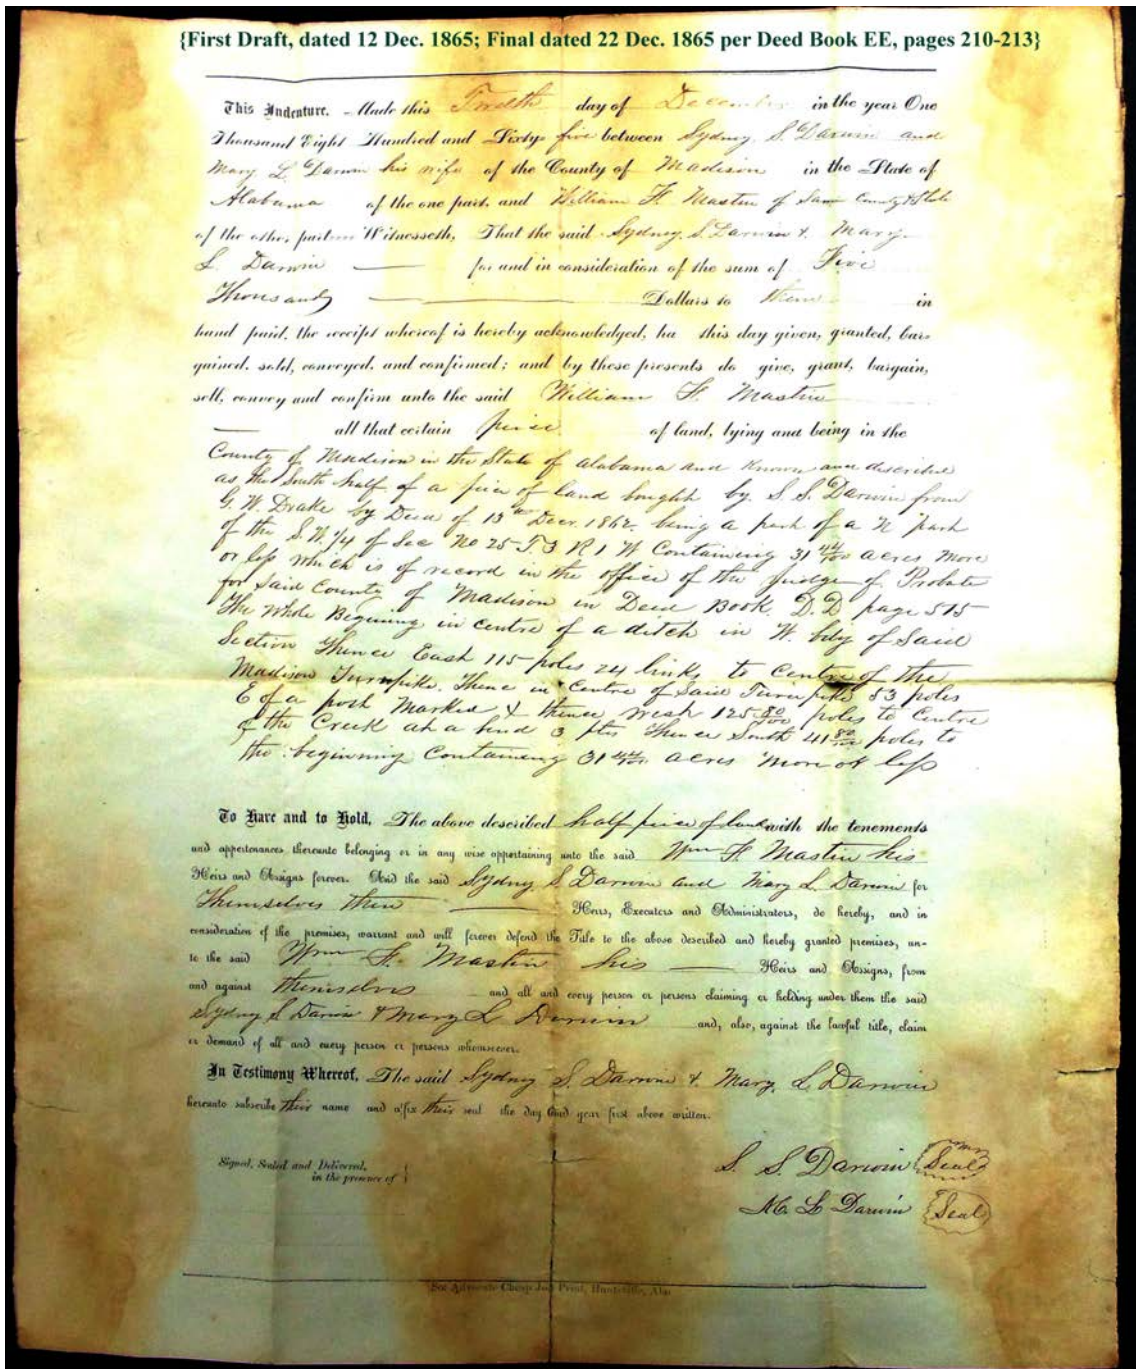 {First Draft, dated 12 Dec. 1865; Final dated 22 Dec. 1865 per Deed Book EE, pages 210-213}
This Indenture. Made this Twelth day of December in the year One
Thousand Eight Hundred and Sixty five between Sydney S. Darwin and
Mary L. Darwin his wife of the County of Madison in the State of
Alabama of the one part, and William F. Mastin of Same County & State
of the other part Witnesseth, That the said Sydney. S. Darwin & Mary
L. Darwin for and in consideration of the sum of Five
Thousand Dollars to them in
hand paid, the receipt whereof is hereby acknowledged, ha this day given, granted, bar-
gained, sold, conveyed, and confirmed; and by these presents do give, grant, bargain,
sell, convey and confirm unto the said William F. Mastin
all that certain peice of land, lying and being in the
County of Madison in the State of Alabama and Known and described
as the South half of a piece of land bought by S. S. Darwin from
G. W. Drake by Deed of 13th Decr. 1862. being a part of a N part
of the S. W. 1/4 of Sec No 25 T. 3 R 1 W Containing 31 44/100 acres more
or less which is of record in the office of the Judge of Probate
for Said County of Madison in Deed Book. D. D page 515
The whole Begining in centre of a ditch in W. bdy of Said
Section Thence East 115 poles 24 links to Centre of the
Madison Turnpike. Thence in Centre of Said Turnpike 53 poles
E of a post Marked X thence West 125 80/100 poles to Centre
of the Creek at a bend 3 Thence South 41 80/100 poles to
the beginning Containing 31 44/100 acres more or less
To Have and to Hold, The above described half peice of land with the tenements
and appertenances thereunto belonging or in any wise appertaining unto the said Wm F. Mastin his
Heirs and Assigns forever. And the said Sydney S. Darwin and Mary L. Darwin for
Themselves their Heirs, Executors and Administrators, do hereby, and in
consideration of the premises, warrant and will forever defend the Title to the above described and hereby granted premises, un-
to the said Wm F. Mastin his Heirs and Assigns, from
and against themselves and all and every person or persons claiming or holding under them the said
Sydney S Darwin & Mary L Darwin and, also, against the lawful title, claim
or demand of all and every person or persons whomsoever.
In Testimony Whereof, The said Sydney S. Darwin & Mary. L Darwin
hereunto subscribe their name and affix their seal the day and year first above written.
Signed, Sealed and Delivered,
in the presence of
S. S. Darwin Seal
M. L. Darwin Seal
Advocate Cheap Job Print, Huntsville, Ala